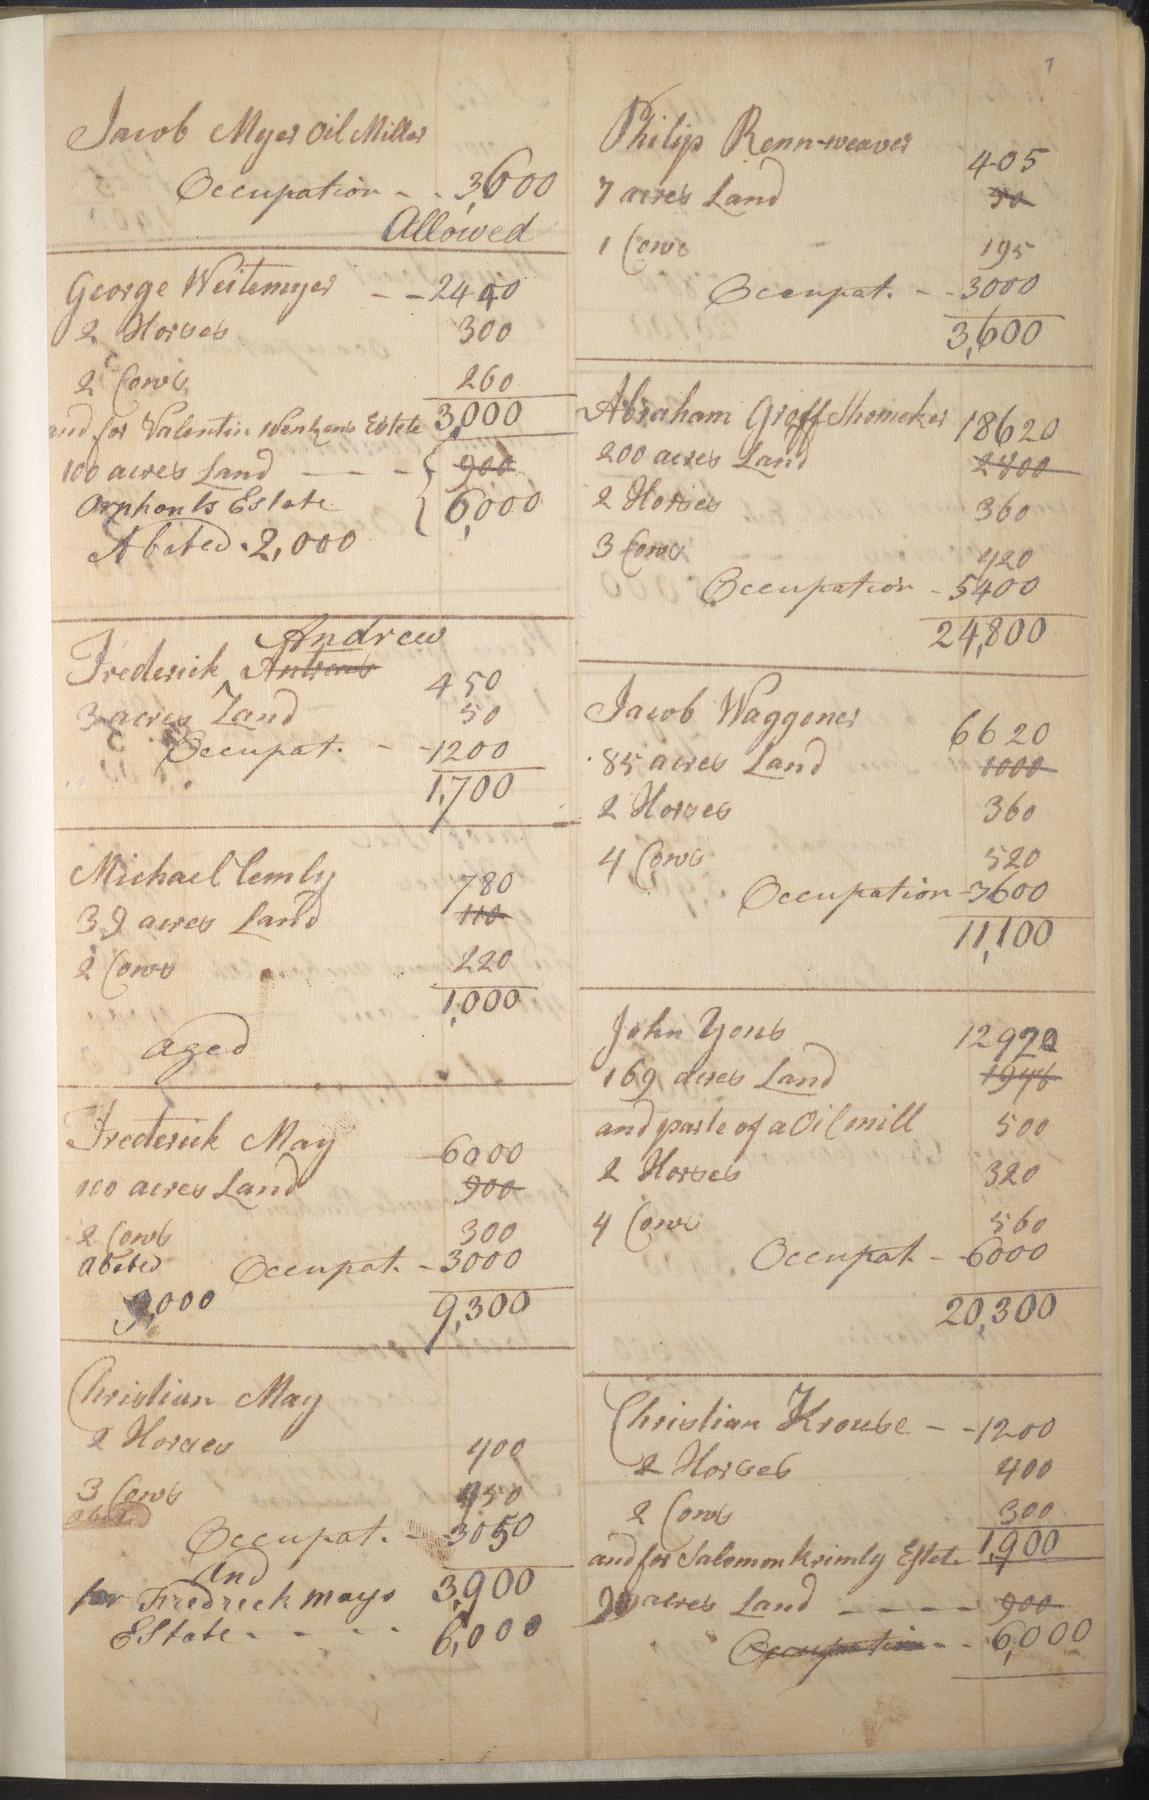 7
Jacob Myer Oil Miller
Occupation - - 3,600
Allowed
George Weitemyer - - 2440
2 Horses 300
2 Cows 260
and for Valentin Estate 3,000
100 acres Land - - - 900
Orphonts Estate 6,000
Abeted . 2,000
Andrew
Frederick 450
3 acres Land 50
Occupat. - - 1200
1,700
Michael Lemly 780
39 acres Land 110
2 Cows 220
1,000
aged
Frederick May 6000
100 acres Land 900
2 Cows 300
abeted Occupat. - 3000
9,000 9,300
Christian May
2 Horses 400
3 Cows 450
abeted
Occupat. - 3050
And 3,900
for Fredrick mays
EState - - - - 6,000
Philip Renn-weaver 405
7 acres Land
1 Cows 195
Occupat. - - 3000
3,600
Abraham Groff Shomeker 18620
200 acres Land 2800
2 Horses 360
3 Cows 420
Occupation - 5400
24,800
Jacob Waggoner 6620
85 acres Land 1000
2 Horses 360
4 Cows 520
Occupation - 3600
11,100
John Yons 12920
169 acres Land 1946
and parte of a Oil mill 500
2 Horses 320
4 Cows 560
Occupat. - 6000
20,300
Christian Krouse - - 1200
2 Horses 400
2 Cows 300
and for Salomon Krimly Estete 1,900
acres Land - - - - 900
Occupation - - 6,000